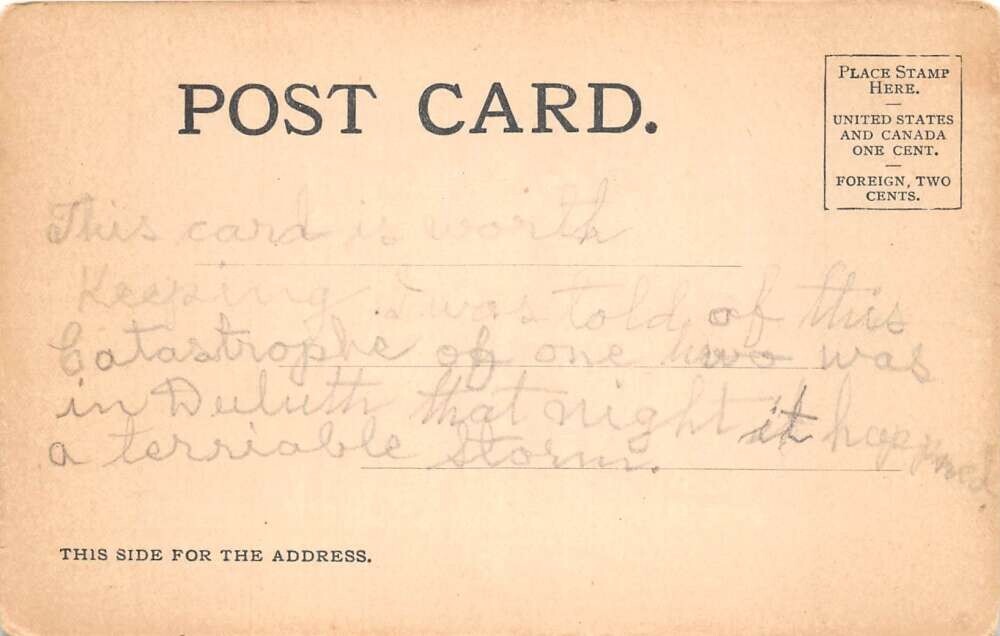 POST CARD.
PLACE STAMP
HERE.
UNITED STATES
AND CANADA
ONE CENT.
FOREIGN, TWO
CENTS.
This card is worth
Keeping I was told of this
Catastrophe of one who was
in Duluth that night it happened
a terriable storm.
THIS SIDE FOR THE ADDRESS.